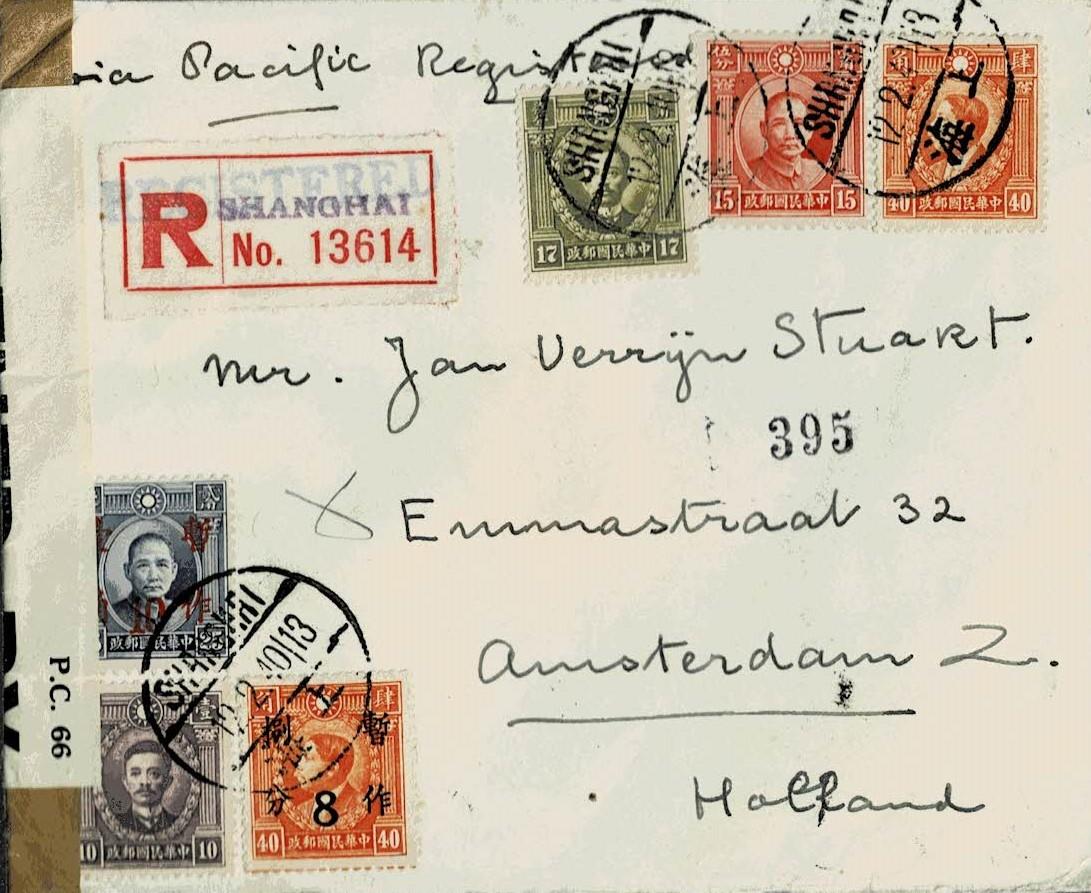 via Pacific Registered
REGISTERED
R
SHANGHAI
No. 13614
SHANGHAI
12 2
17 政郵國民華中 17
伍分
15 政郵國民華中 15
SHANGHAI
12.2.40 13
上海
肆
40 政郵國民華中 40
Mr. Jan Verrijn Stuart.
395
Emmastraat 32
Amsterdam Z.
Holland
暫作
10
政郵國民華中 25
SHANGHAI
12.2.40 13
上
10 政郵國民華中 10
肆
暫作
捌分
8
40 政郵國民華中 40
P.C. 66
BY